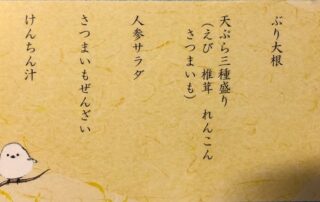 ぶり大根
天ぷら三種盛り
（えび　椎茸　れんこん
さつまいも）
人参サラダ
さつまいもぜんざい
けんちん汁